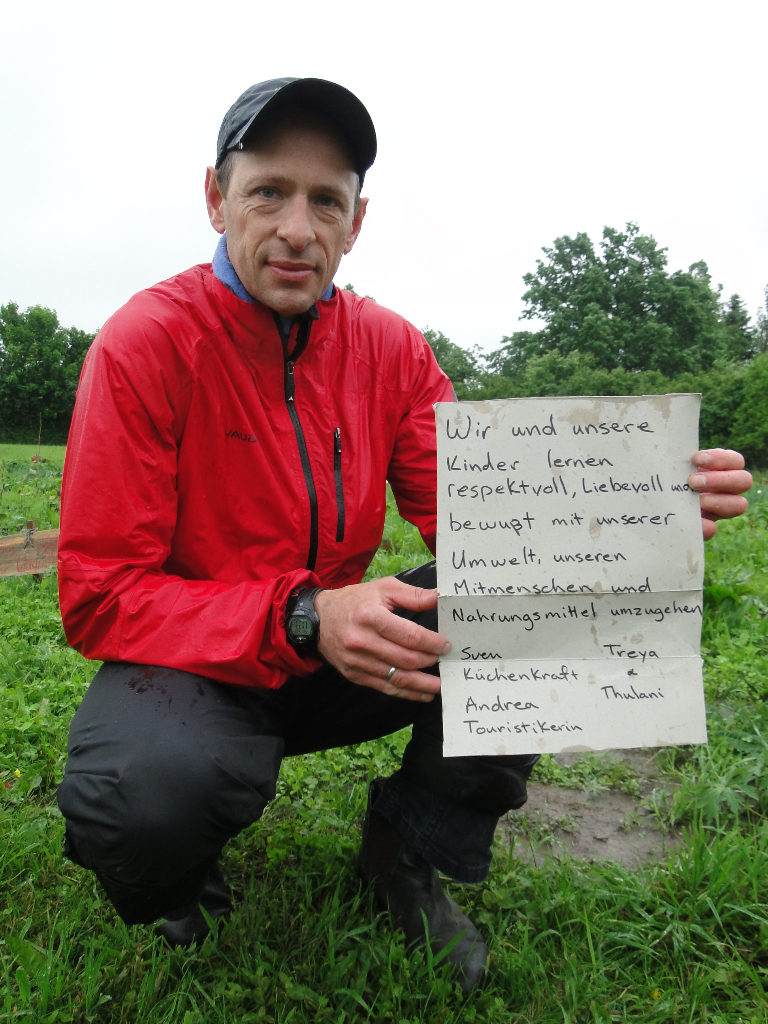 VAUDE
Wir und unsere
Kinder lernen
respektvoll, Liebevoll und
bewußt mit unserer
Umwelt, unseren
Mitmenschen und
Nahrungsmittel umzugehen
Sven Treya
Küchenkraft &
Andrea Thulani
Touristikerin